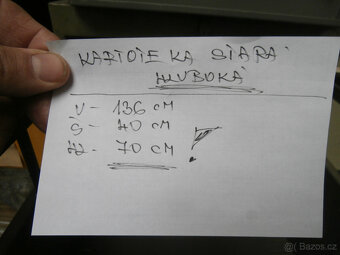 KARTOTEKA STARÁ
HLUBOKÁ
V - 136 CM
Š - 40 CM
H - 70 CM !
© Bazos.cz